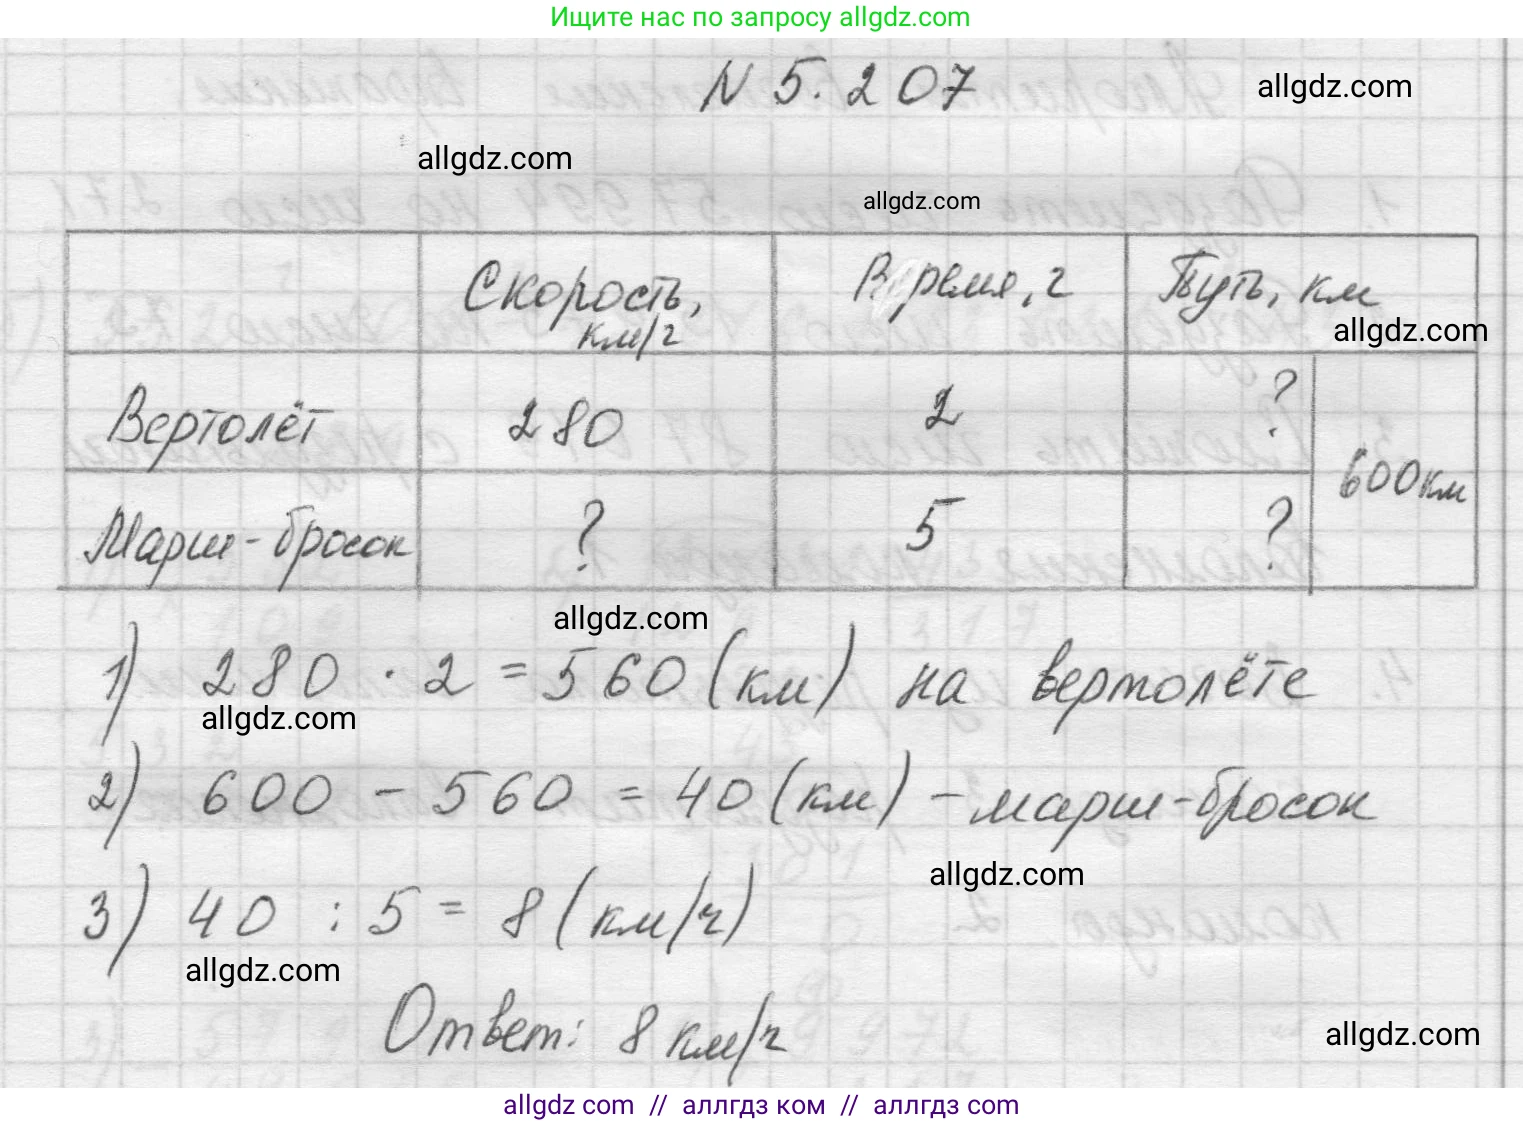 Ищите нас по запросу allgdz.com
N 5.207
allgdz.com
allgdz.com
allgdz.com
Скорость, км/ч Время, ч Путь, км
allgdz.com
Вертолёт 280 2 ?
600км
Марш-бросок ? 5 ?
allgdz.com
1) 280 · 2 = 560 (км) на вертолёте
allgdz.com
2) 600 - 560 = 40 (км) - марш-бросок
allgdz.com
3) 40 : 5 = 8 (км/ч)
allgdz.com
Ответ: 8 км/ч
allgdz.com
allgdz com // аллгдз ком // аллгдз com